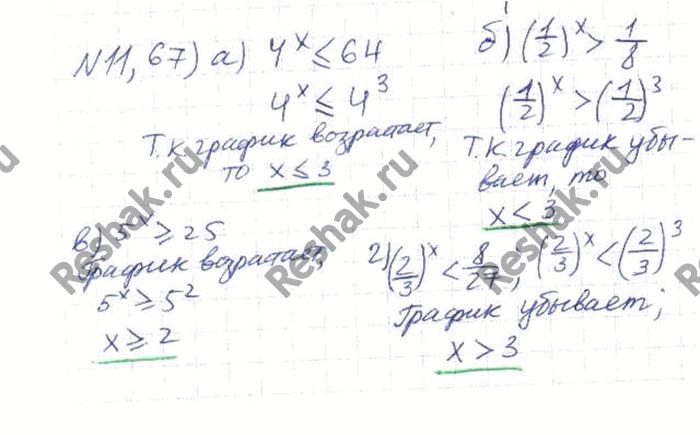 N11,67) а) 4^x ≤ 64
4^x ≤ 4^3
Т.к. график возрастает,
то x ≤ 3
б) (1/2)^x > 1/8
(1/2)^x > (1/2)^3
Т.к. график убы-
вает, то
x < 3
в) 5^x ≥ 25
График возрастает,
5^x ≥ 5^2
x ≥ 2
г) (2/3)^x < 8/27, (2/3)^x < (2/3)^3
График убывает;
x > 3
Reshak.ru
Reshak.ru
Reshak.ru
Reshak.ru